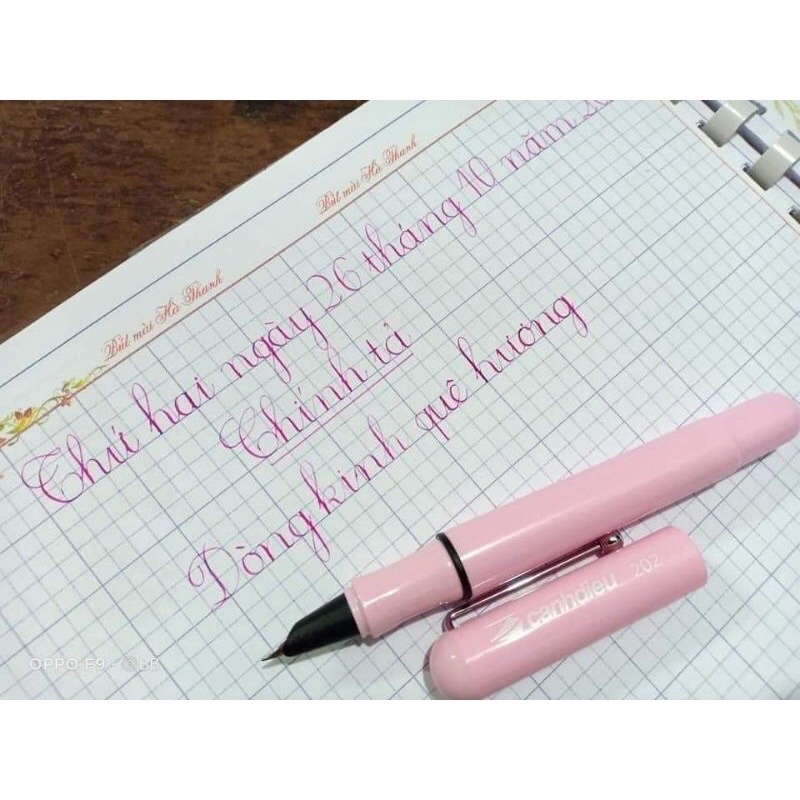 Bút mài Hà Thanh
Bút mài Hà Thanh
Thứ hai ngày 26 tháng 10 năm
Chính tả
Dòng kinh quê hương
canhdieu 202
OPPO F9